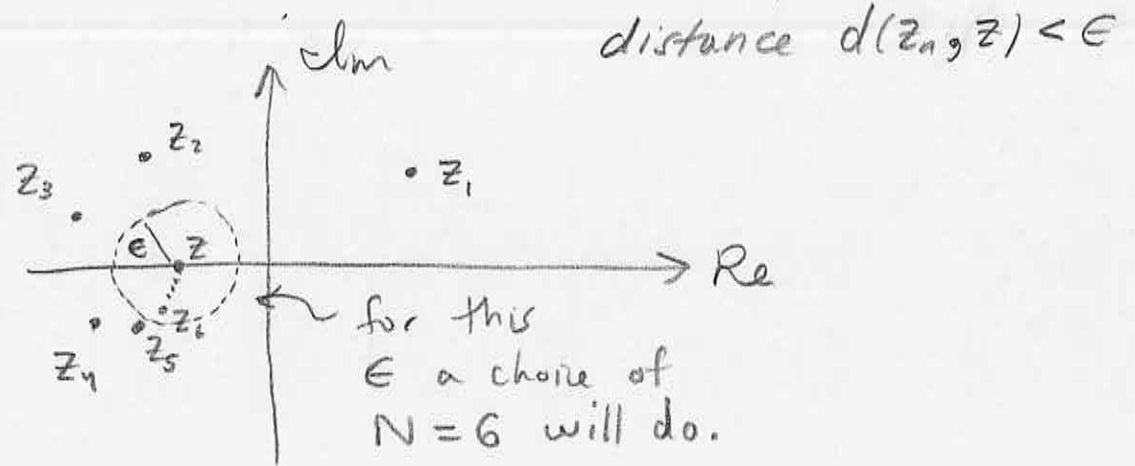 Im
distance d(z_n, z) < ϵ
z_2
z_1
z_3
ϵ z
Re
z_6
z_5
z_4
for this
ϵ a choice of
N = 6 will do.